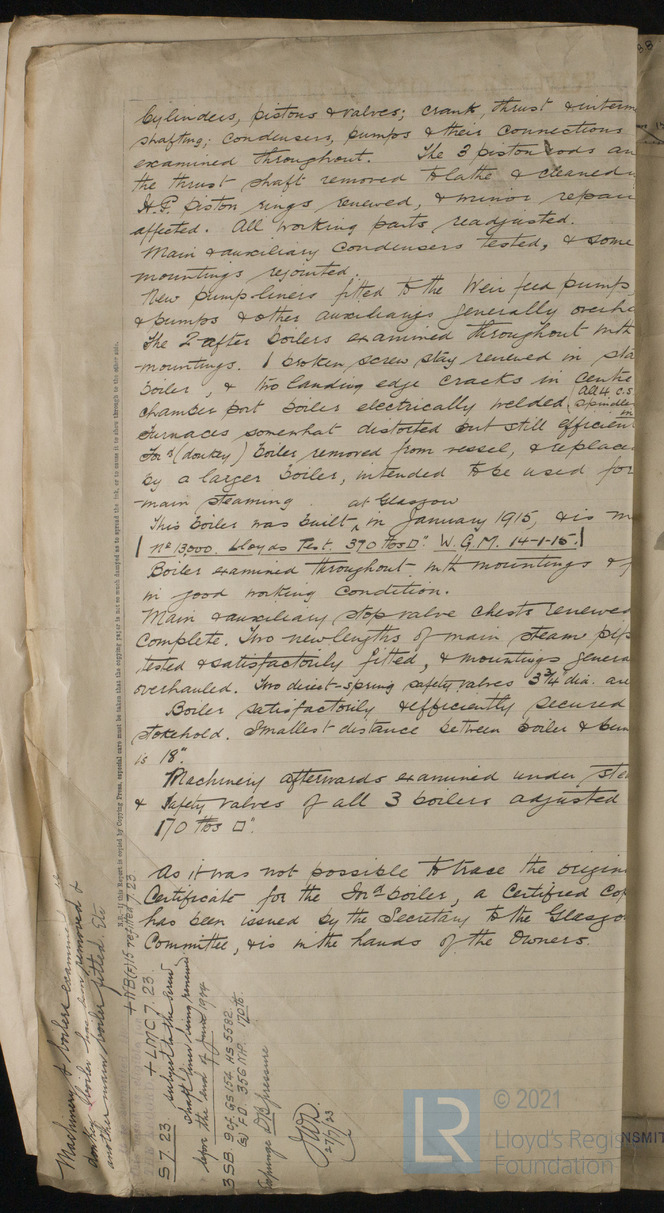 Cylinders, pistons & valves; crank, thrust & interm
shafting; condensers, pumps & their connections
examined throughout. The 3 piston rods an
the thrust shaft removed to lathe & cleaned
H.P. piston rings renewed, & minor repair
affected. All working parts readjusted.
Main & auxiliary condensers tested, & some
mountings rejointed.
New pump liners fitted to the Weir feed pumps
& pumps & other auxiliarys generally overha
The 2 after boilers examined throughout with
mountings. 1 broken screw stay renewed in sta
boiler, & two landing edge cracks in centre
chamber port boiler electrically welded. All 4 c.s
spindles
furnaces somewhat distorted but still efficient
For'd (donkey) boiler removed from vessel, & replace
by a larger boiler, intended to be used for
main steaming.
This boiler was built at Glasgow in January 1915, & is m
No 13,000. Lloyds Test. 390 lbs □". W.G.M. 14-1-15.
Boiler examined throughout with mountings & f
in good working condition.
Main & auxiliary stop valve chests renewed
complete. Two new lengths of main steam pip
tested & satisfactorily fitted, & mountings genera
overhauled. Two direct-spring safety valves 3¾" dia. are
Boiler satisfactorily & efficiently secured
stokehold. Smallest distance between boiler & bun
is 18".
Machinery afterwards examined under ste
& safety valves of all 3 boilers adjusted
170 lbs □".
As it was not possible to trace the origin
Certificate for the For'd boiler, a Certified Cop
has been issued by the Secretary to the Glasgo
Committee, & is in the hands of the Owners.
N.B.—If this Report is copied by Copying Press, especial care must be taken that the copying paper is not so much damped as to spread the ink, or to cause it to show through to the other side.
Machinery & boilers examined
donkey boiler has been removed &
another main boiler fitted. Etc
+ NB(s)15 refitted 7.23
+ LMC 7.23
S 7.23 subject to the screw
shaft liner being renewed
before the end of June 1924
3 SB 9cf. GS 154 HS 5582.
FD. 356 NP. 170 lb.
Expunge DB pressure
27/7/23
© 2021
Lloyd's Regis
Foundation
NSMIT